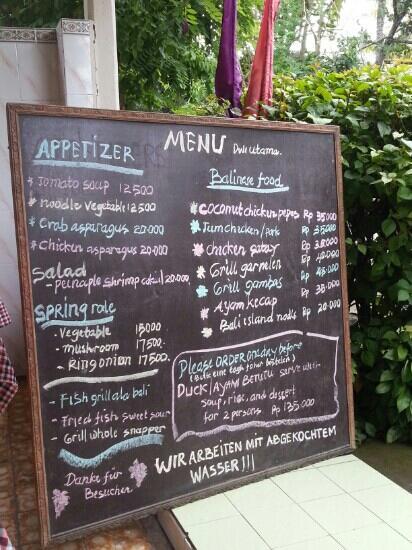 MENU Dwi utama.
APPETIZER
* Tomato soup 12500
* Noodle vegetable 12500
* Crab asparagus 20.000
* Chicken asparagus 20.000
Salad
- peineaple shrimp coktail 20.000
Spring role
- Vegetable 15000
- mushroom 17500.
- Ring onion 17500.
- Fish grill ala bali
- Fried fish sweet sour
- Grill whole snapper
Danke für
Besuchen.
Balinese food
coconut chicken pepes Rp 35000
Tum chicken/pork Rp 35000
chicken satay Rp 38.000
Grill garnelen Rp 48.000
Grill gambas Rp 48.000
Ayam kecap Rp 38.000
Bali island nasks Rp 20.000
Please ORDER one day before
DUCK/AYAM BETUTU serve with
soup, rice, and dessert
for 2 persons Rp 135.000
WIR ARBEITEN MIT ABGEKOCHTEM
WASSER!!!